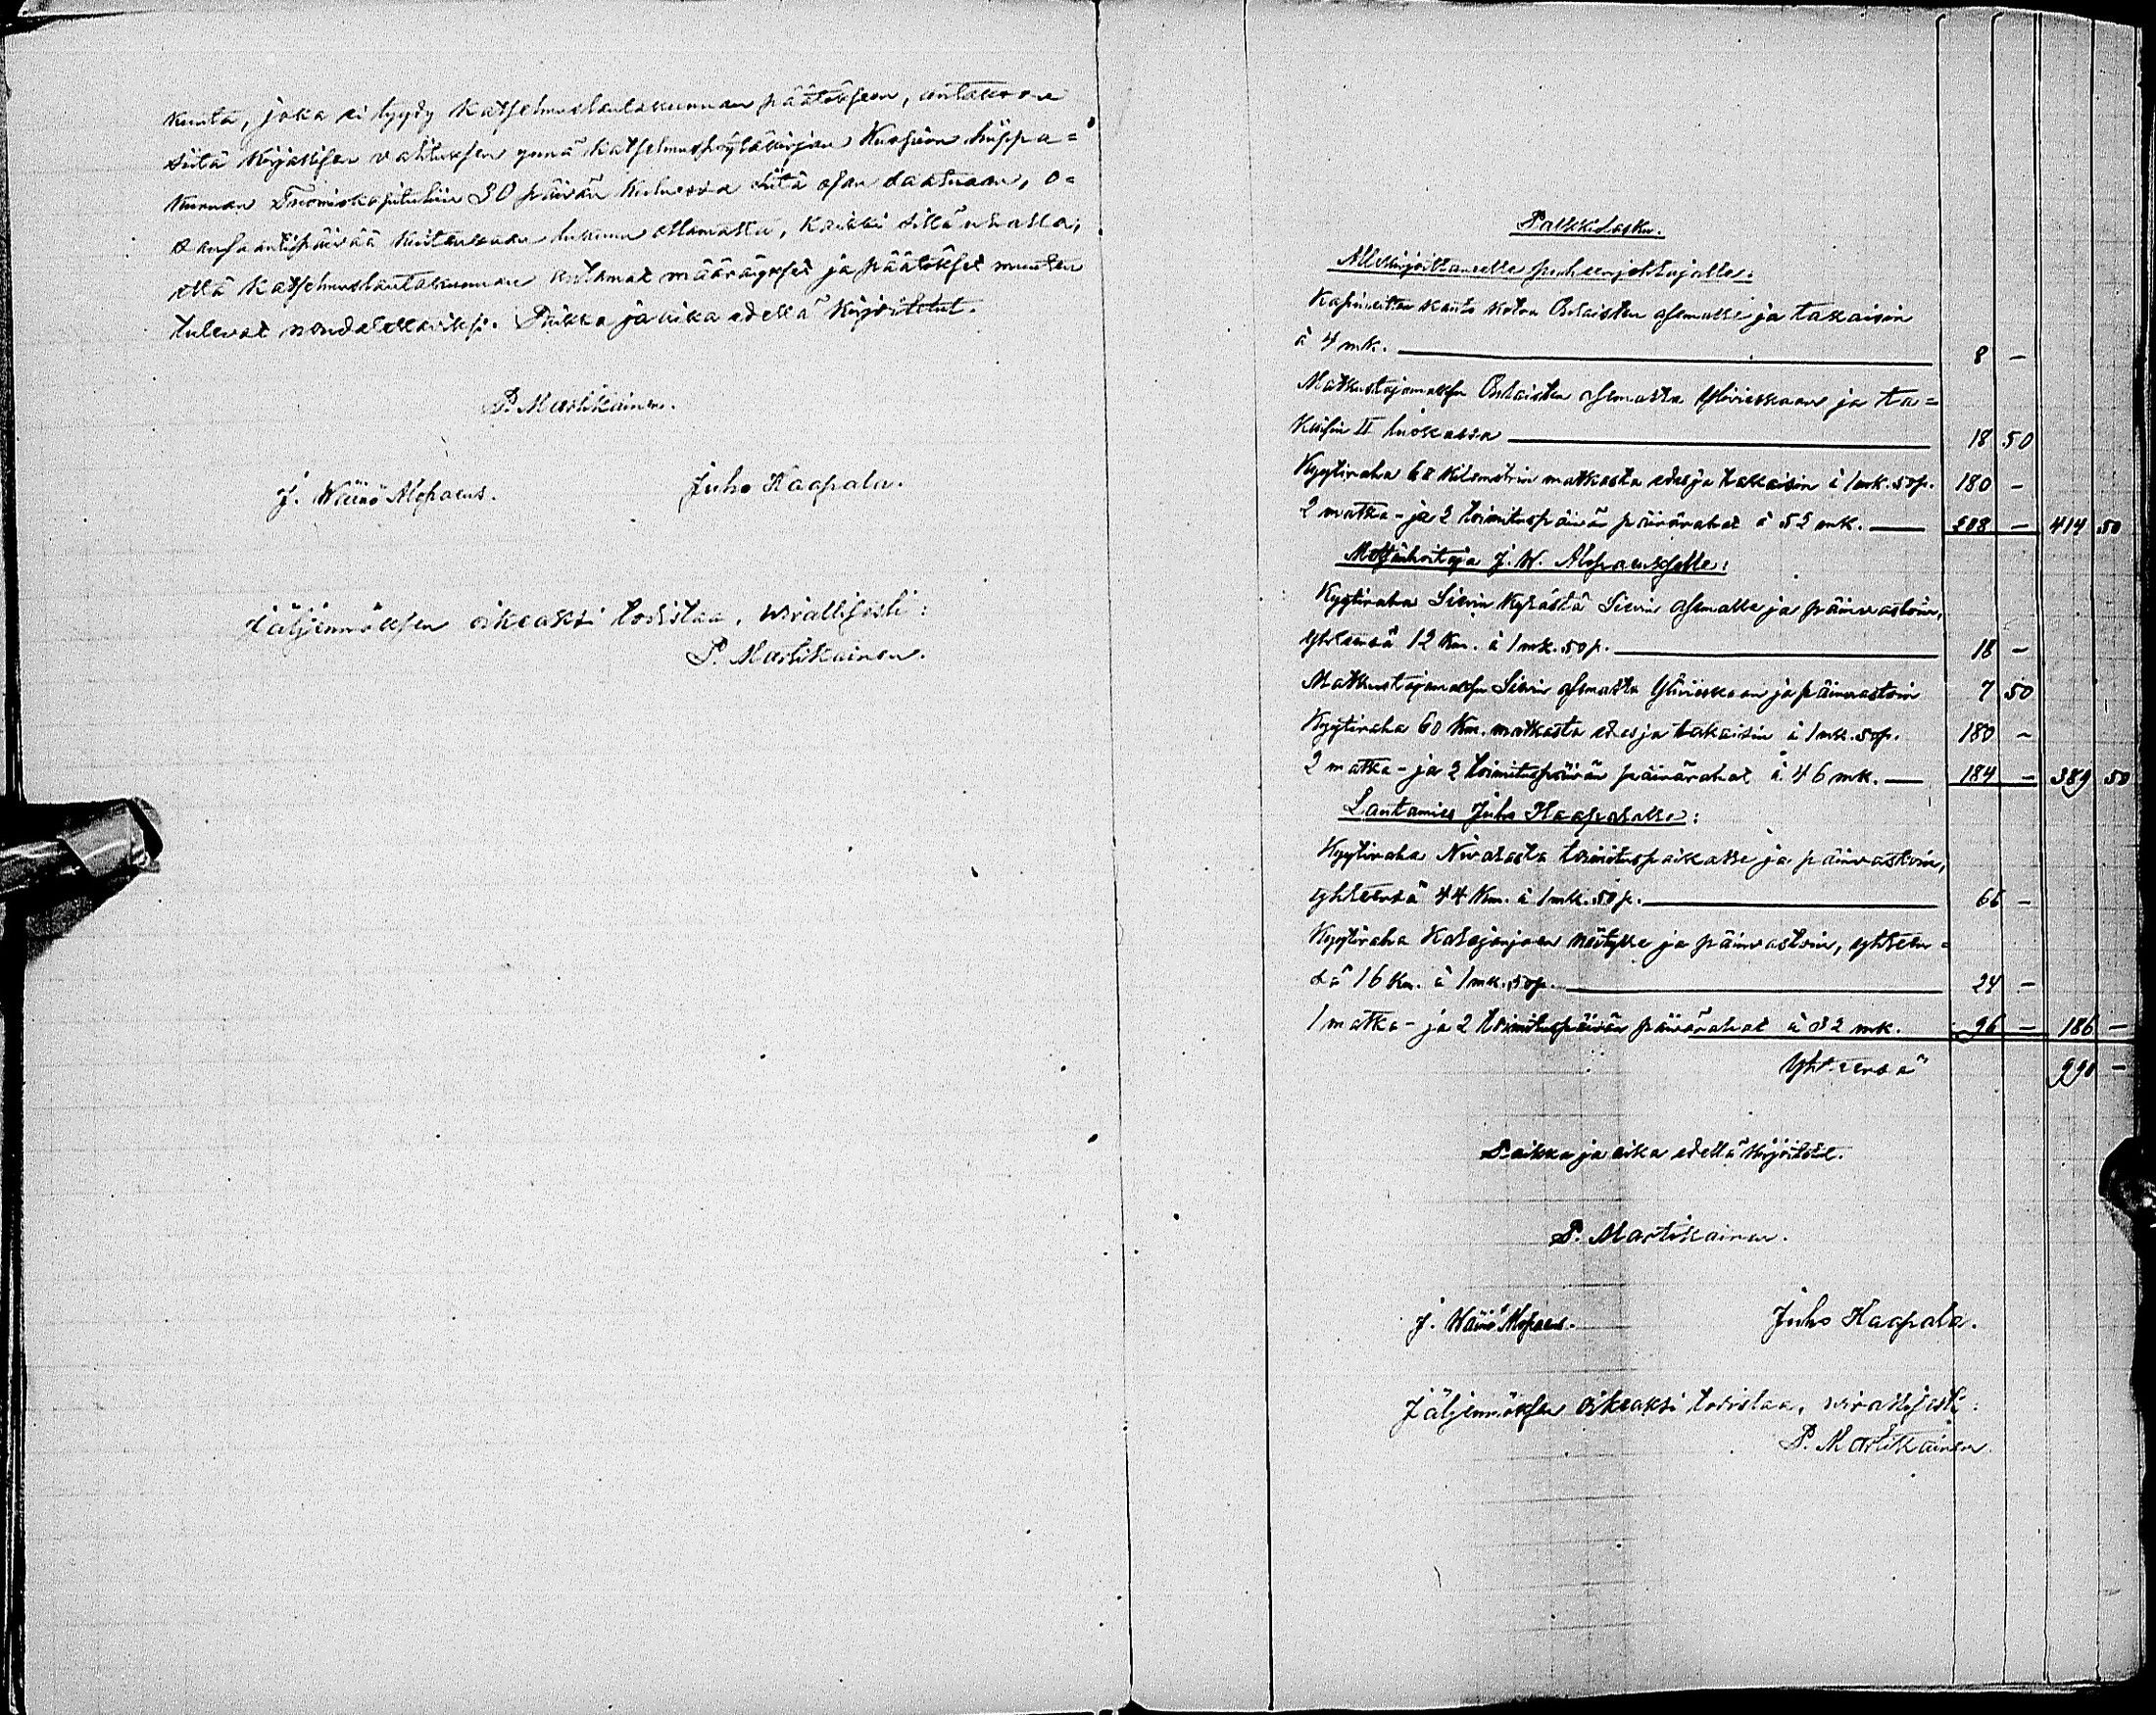 kunta, joka ei tyydy katselmuslautakunnan päätökseen, antakoon
siitä kirjallisen valituksen ynnä katselmuspöytäkirjan Kuopion hiippa=
kunnan Tuomiokapituliin 30 päivän kuluessa siitä saatuaan, o=
ansaantipäivää kuitenkaan lukuun ottamatta, kaikki sillä uhalla,
että katselmuslautakunnan antamat määräykset ja päätökset muuten
tulevat noudatettaviksi. Paikka ja aika edellä kirjoitetut.
P. Martikainen.
J. Wäinö Alopaeus.
Juho Haapala.
Jäljennöksen oikeaksi todistaa, wirallisesti:
P. Martikainen.
Palkkiolasku.
Allekirjoittaneelle puheenjohtajalle:
Kapineitten kanto kotoa Oulaisten asemalle ja takaisin
à 4 mk. 8 –
Matkustajamaksu Oulaisten asemalta Ylivieskaan ja ta=
kaisin II luokassa 18 50
Kyytiraha 60 kilometrin matkasta edes ja takaisin à 1 mk. 50 p. 180 –
2 matka- ja 2 toimituspäivän päivärahat à 52 mk. 208 – 414 50
Metsänhoitaja J. W. Alopaeukselle:
Kyytiraha Sievin kylästä Sievin asemalle ja päinvastoin,
yhteensä 12 Km. à 1 mk. 50 p. 18 –
Matkustajamaksu Sievin asemalta Ylivieskaan ja päinvastoin 7 50
Kyytiraha 60 Km. matkasta edes ja takaisin à 1 mk. 50 p. 180 –
2 matka- ja 2 toimituspäivän päivärahat à 46 mk. 184 – 389 50
Lautamies Juho Haapalalle:
Kyytiraha Nivalasta toimituspaikalle ja päinvastoin,
yhteensä 44 Km. à 1 mk. 50 p. 66 –
Kyytiraha Kalajanjoen niitylle ja päinvastoin, yhteen=
sä 16 Km. à 1 mk. 50 p. 24 –
1 matka- ja 2 toimituspäivän päivärahat à 32 mk. 96 – 186 –
Yhteensä 990 –
Paikka ja aika edellä kirjoitetut.
P. Martikainen.
J. Wäinö Alopaeus.
Juho Haapala.
Jäljennöksen oikeaksi todistaa, wirallisesti:
P. Martikainen.